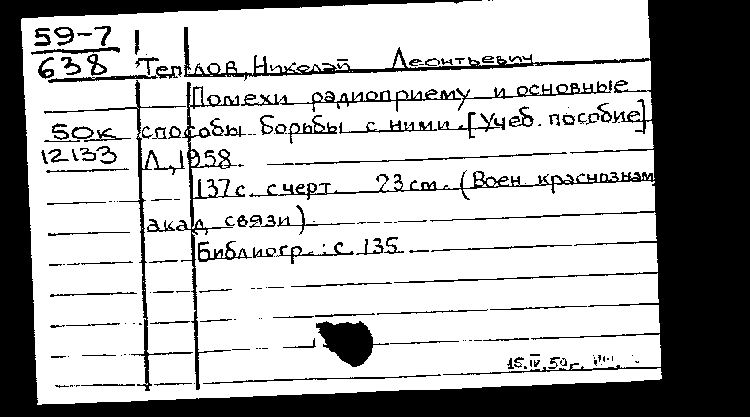 59-7
638 Теплов, Николай Леонтьевич
Помехи радиоприему и основные
50к способы борьбы с ними. [Учеб. пособие]
12133 Л., 1958.
137 с. с черт. 23 cm. (Воен. краснознам
акад. связи)
Библиогр.: с. 135
15.IV.59г.